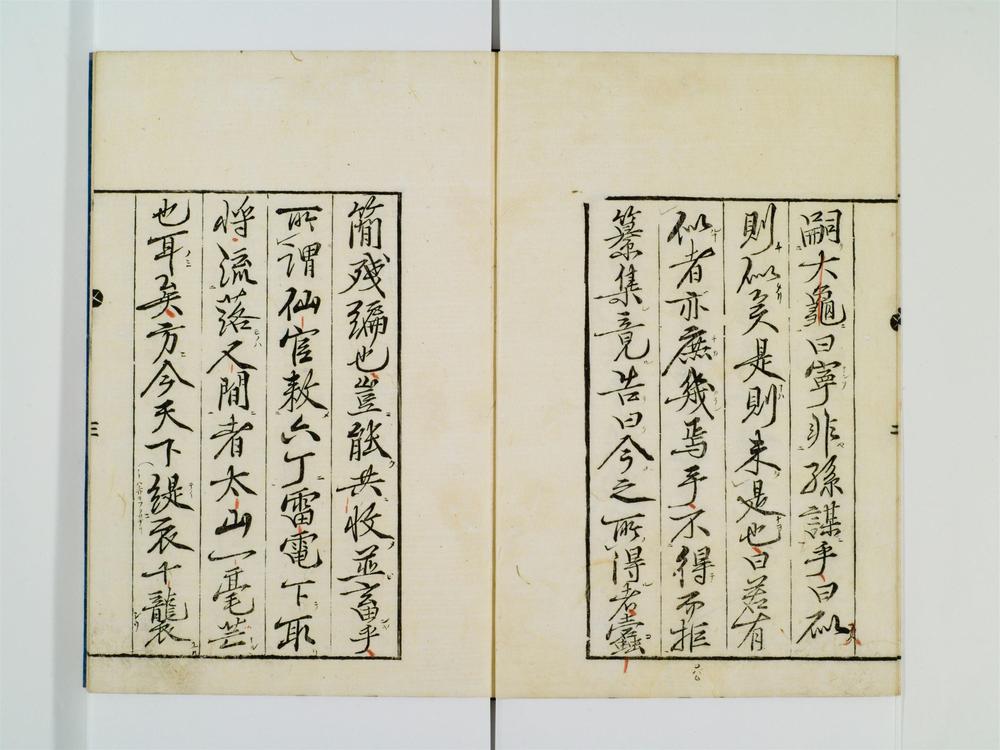 嗣大龜曰寧非孫謀乎曰似
則似矣是則未是也曰若有
似者亦庶幾焉乎不得而拒
纂集竟告曰今之所得者蠹
簡殘編也豈能共收並畜乎
所謂仙官敕六丁雷電下取
將流落人間者太山一毫芒
也耳矣方今天下緹衣十襲